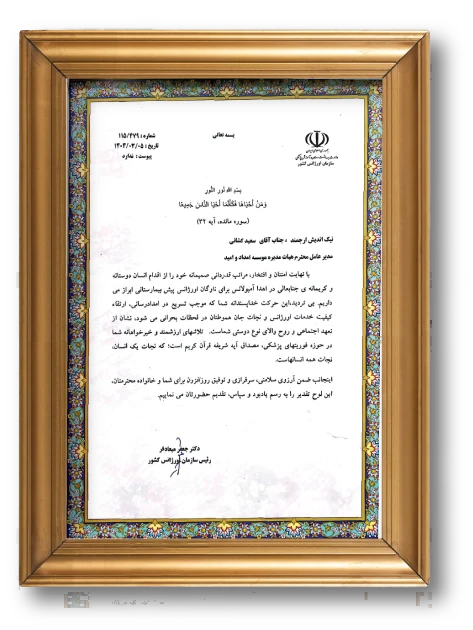 بسمه تعالی
شماره : ۱۱۵/۴۷۹
تاریخ : ۱۴۰۴/۰۳/۰۵
پیوست : ندارد
سازمان اورژانس کشور
بسم الله نور النور
وَمَنْ أَحْيَاهَا فَكَأَنَّمَا أَحْيَا النَّاسَ جَمِيعًا
(سوره مائده، آیه ۳۲)
نیک اندیش ارجمند ، جناب آقای سعید کشانی
مدیر عامل محترم هیات مدیره موسسه امداد و امید
با نهایت امتنان و افتخار، مراتب قدردانی صمیمانه خود را از اقدام انسان دوستانه
و کریمانه ی جنابعالی در اهدا آمبولانس برای ناوگان اورژانس پیش بیمارستانی ابراز می
داریم. بی تردید،این حرکت خداپسندانه شما که موجب تسریع در امدادرسانی، ارتقاء
کیفیت خدمات اورژانس و نجات جان هموطنان در لحظات بحرانی می شود، نشان از
تعهد اجتماعی و روح والای نوع دوستی شماست. تلاشهای ارزشمند و خیرخواهانه شما
در حوزه فوریتهای پزشکی، مصداق آیه شریفه قرآن کریم است؛ که نجات یک انسان،
نجات همه انسانهاست.
اینجانب ضمن آرزوی سلامتی، سرفرازی و توفیق روزافزون برای شما و خانواده محترمتان،
این لوح تقدیر را به رسم یادبود و سپاس، تقدیم حضورتان می نماییم.
دکتر جعفر میعادفر
رئیس سازمان اورژانس کشور